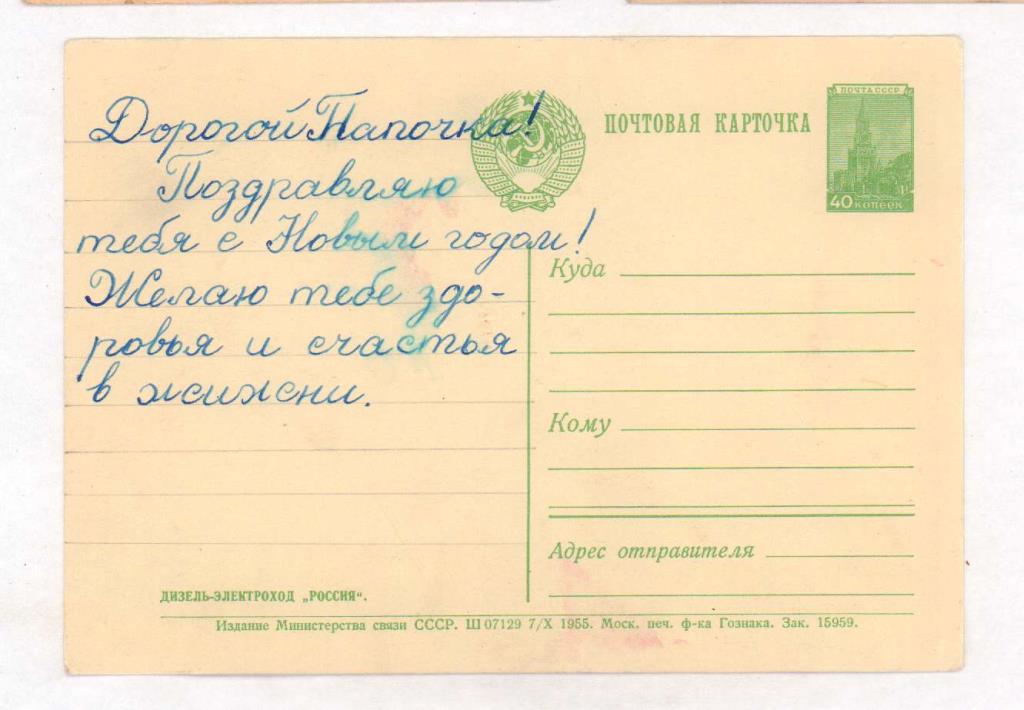 Дорогой Папочка!
Поздравляю
тебя с Новым годом!
Желаю тебе здо-
ровья и счастья
в жижни.
ПОЧТОВАЯ КАРТОЧКА
ПОЧТА СССР
40 КОПЕЕК
Куда
Кому
Адрес отправителя
ДИЗЕЛЬ-ЭЛЕКТРОХОД „РОССИЯ“.
Издание Министерства связи СССР. Ш 07129 7/X 1955. Моск. печ. ф-ка Гознака. Зак. 15959.